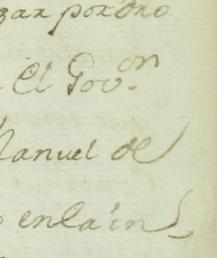 gar por dho
El Gov.on
Manuel de
enla ins